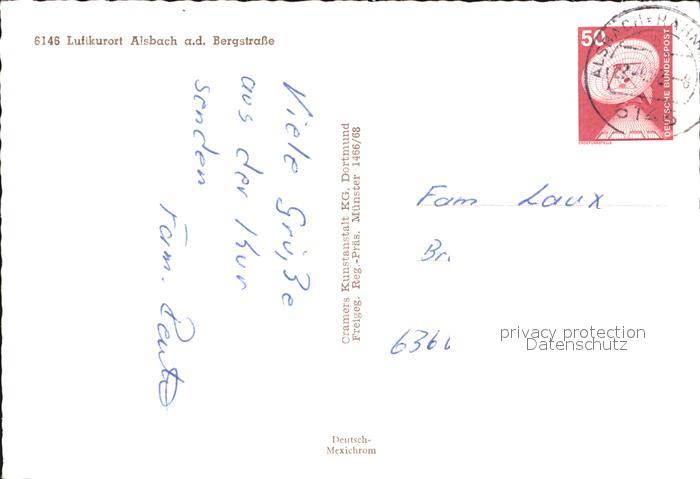 6146 Luftkurort Alsbach a.d. Bergstraße
Viele Grüße
aus der Kur
senden
Fam.
Cramers Kunstanstalt KG. Dortmund
Freigeg. Reg.-Präs. Münster 1466/68
50
DEUTSCHE BUNDESPOST
ALSBACH-HAHN
6146
Fam Laux
Br.
636
privacy protection
Datenschutz
Deutsch-
Mexichrom